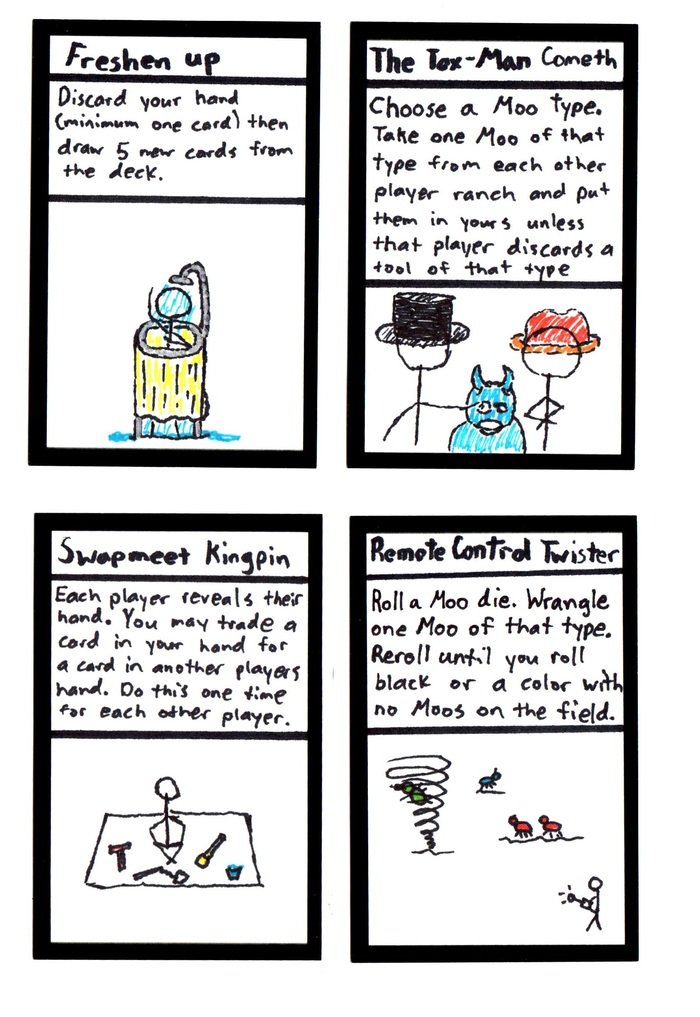 Freshen up
Discard your hand
(minimum one card) then
draw 5 new cards from
the deck.
The Tax-Man Cometh
Choose a Moo type.
Take one Moo of that
type from each other
player ranch and put
them in yours unless
that player discards a
tool of that type
Swapmeet Kingpin
Each player reveals their
hand. You may trade a
card in your hand for
a card in another players
hand. Do this one time
for each other player.
Remote Control Twister
Roll a Moo die. Wrangle
one Moo of that type.
Reroll until you roll
black or a color with
no Moos on the field.